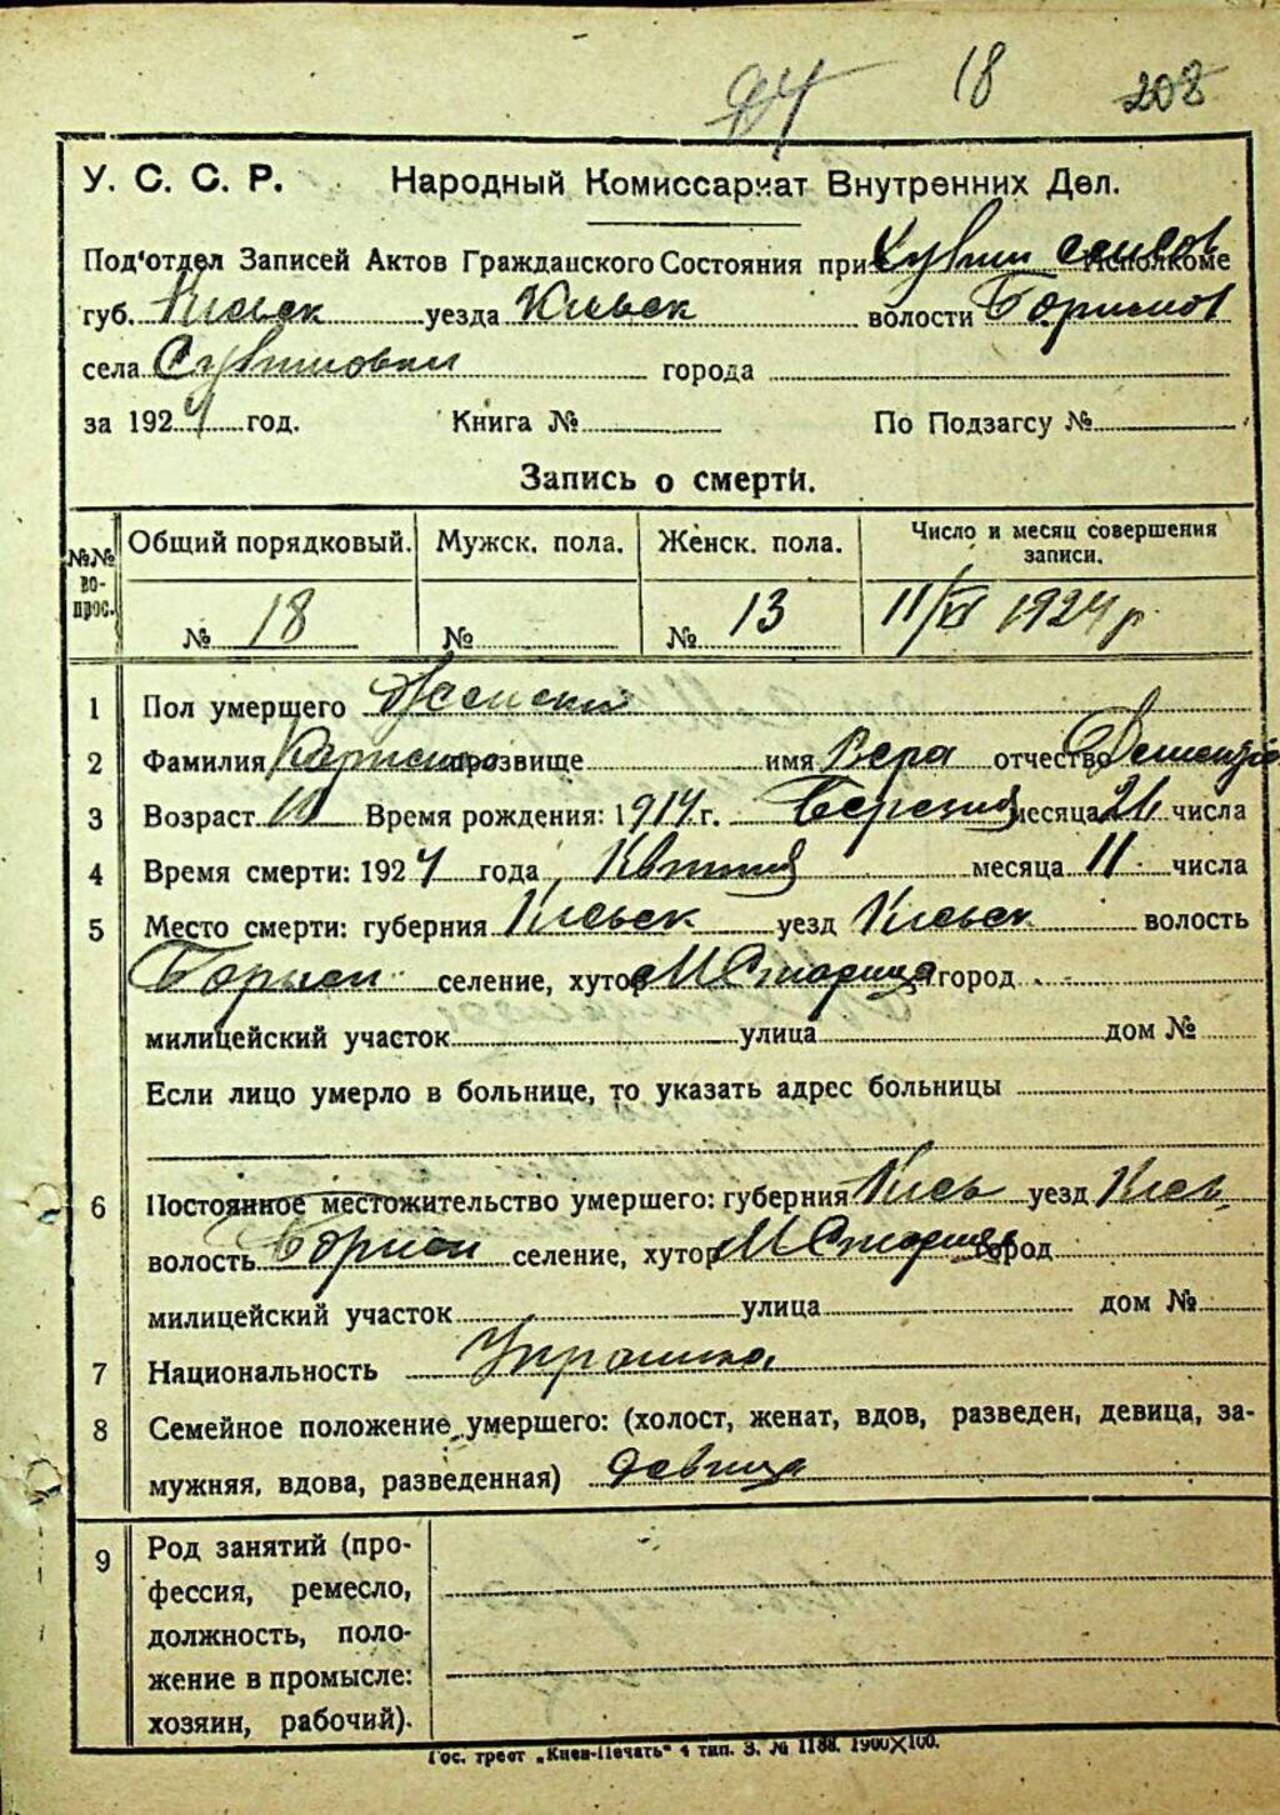 18 208
У. С. С. Р. Народный Комиссариат Внутренних Дел.
Под'отдел Записей Актов Гражданского Состояния при Исполкоме
губ. Киевск уезда Киевск волости
села города
за 1924 год. Книга № По Подзагсу №
Запись о смерти.
№№ во-прос. Общий порядковый. Мужск. пола. Женск. пола. Число и месяц совершения записи.
№ 18 № № 13 11/VI 1924 р
1 Пол умершего
2 Фамилия прозвище имя Вера отчество
3 Возраст 10 Время рождения: 1914 г. Березня месяца 26 числа
4 Время смерти: 1924 года Квітня месяца 11 числа
5 Место смерти: губерния Киевск уезд Киевск волость
селение, хутор М Стариця город
милицейский участок улица дом №
Если лицо умерло в больнице, то указать адрес больницы
6 Постоянное местожительство умершего: губерния Киев уезд Киев
волость селение, хутор М Стариця город
милицейский участок улица дом №
7 Национальность
8 Семейное положение умершего: (холост, женат, вдов, разведен, девица, за-
мужняя, вдова, разведенная) девица
9 Род занятий (про-
фессия, ремесло,
должность, поло-
жение в промысле:
хозяин, рабочий).
Гос. трест „Киев-Печать“ 4 тип. З. № 1188. 1900X100.